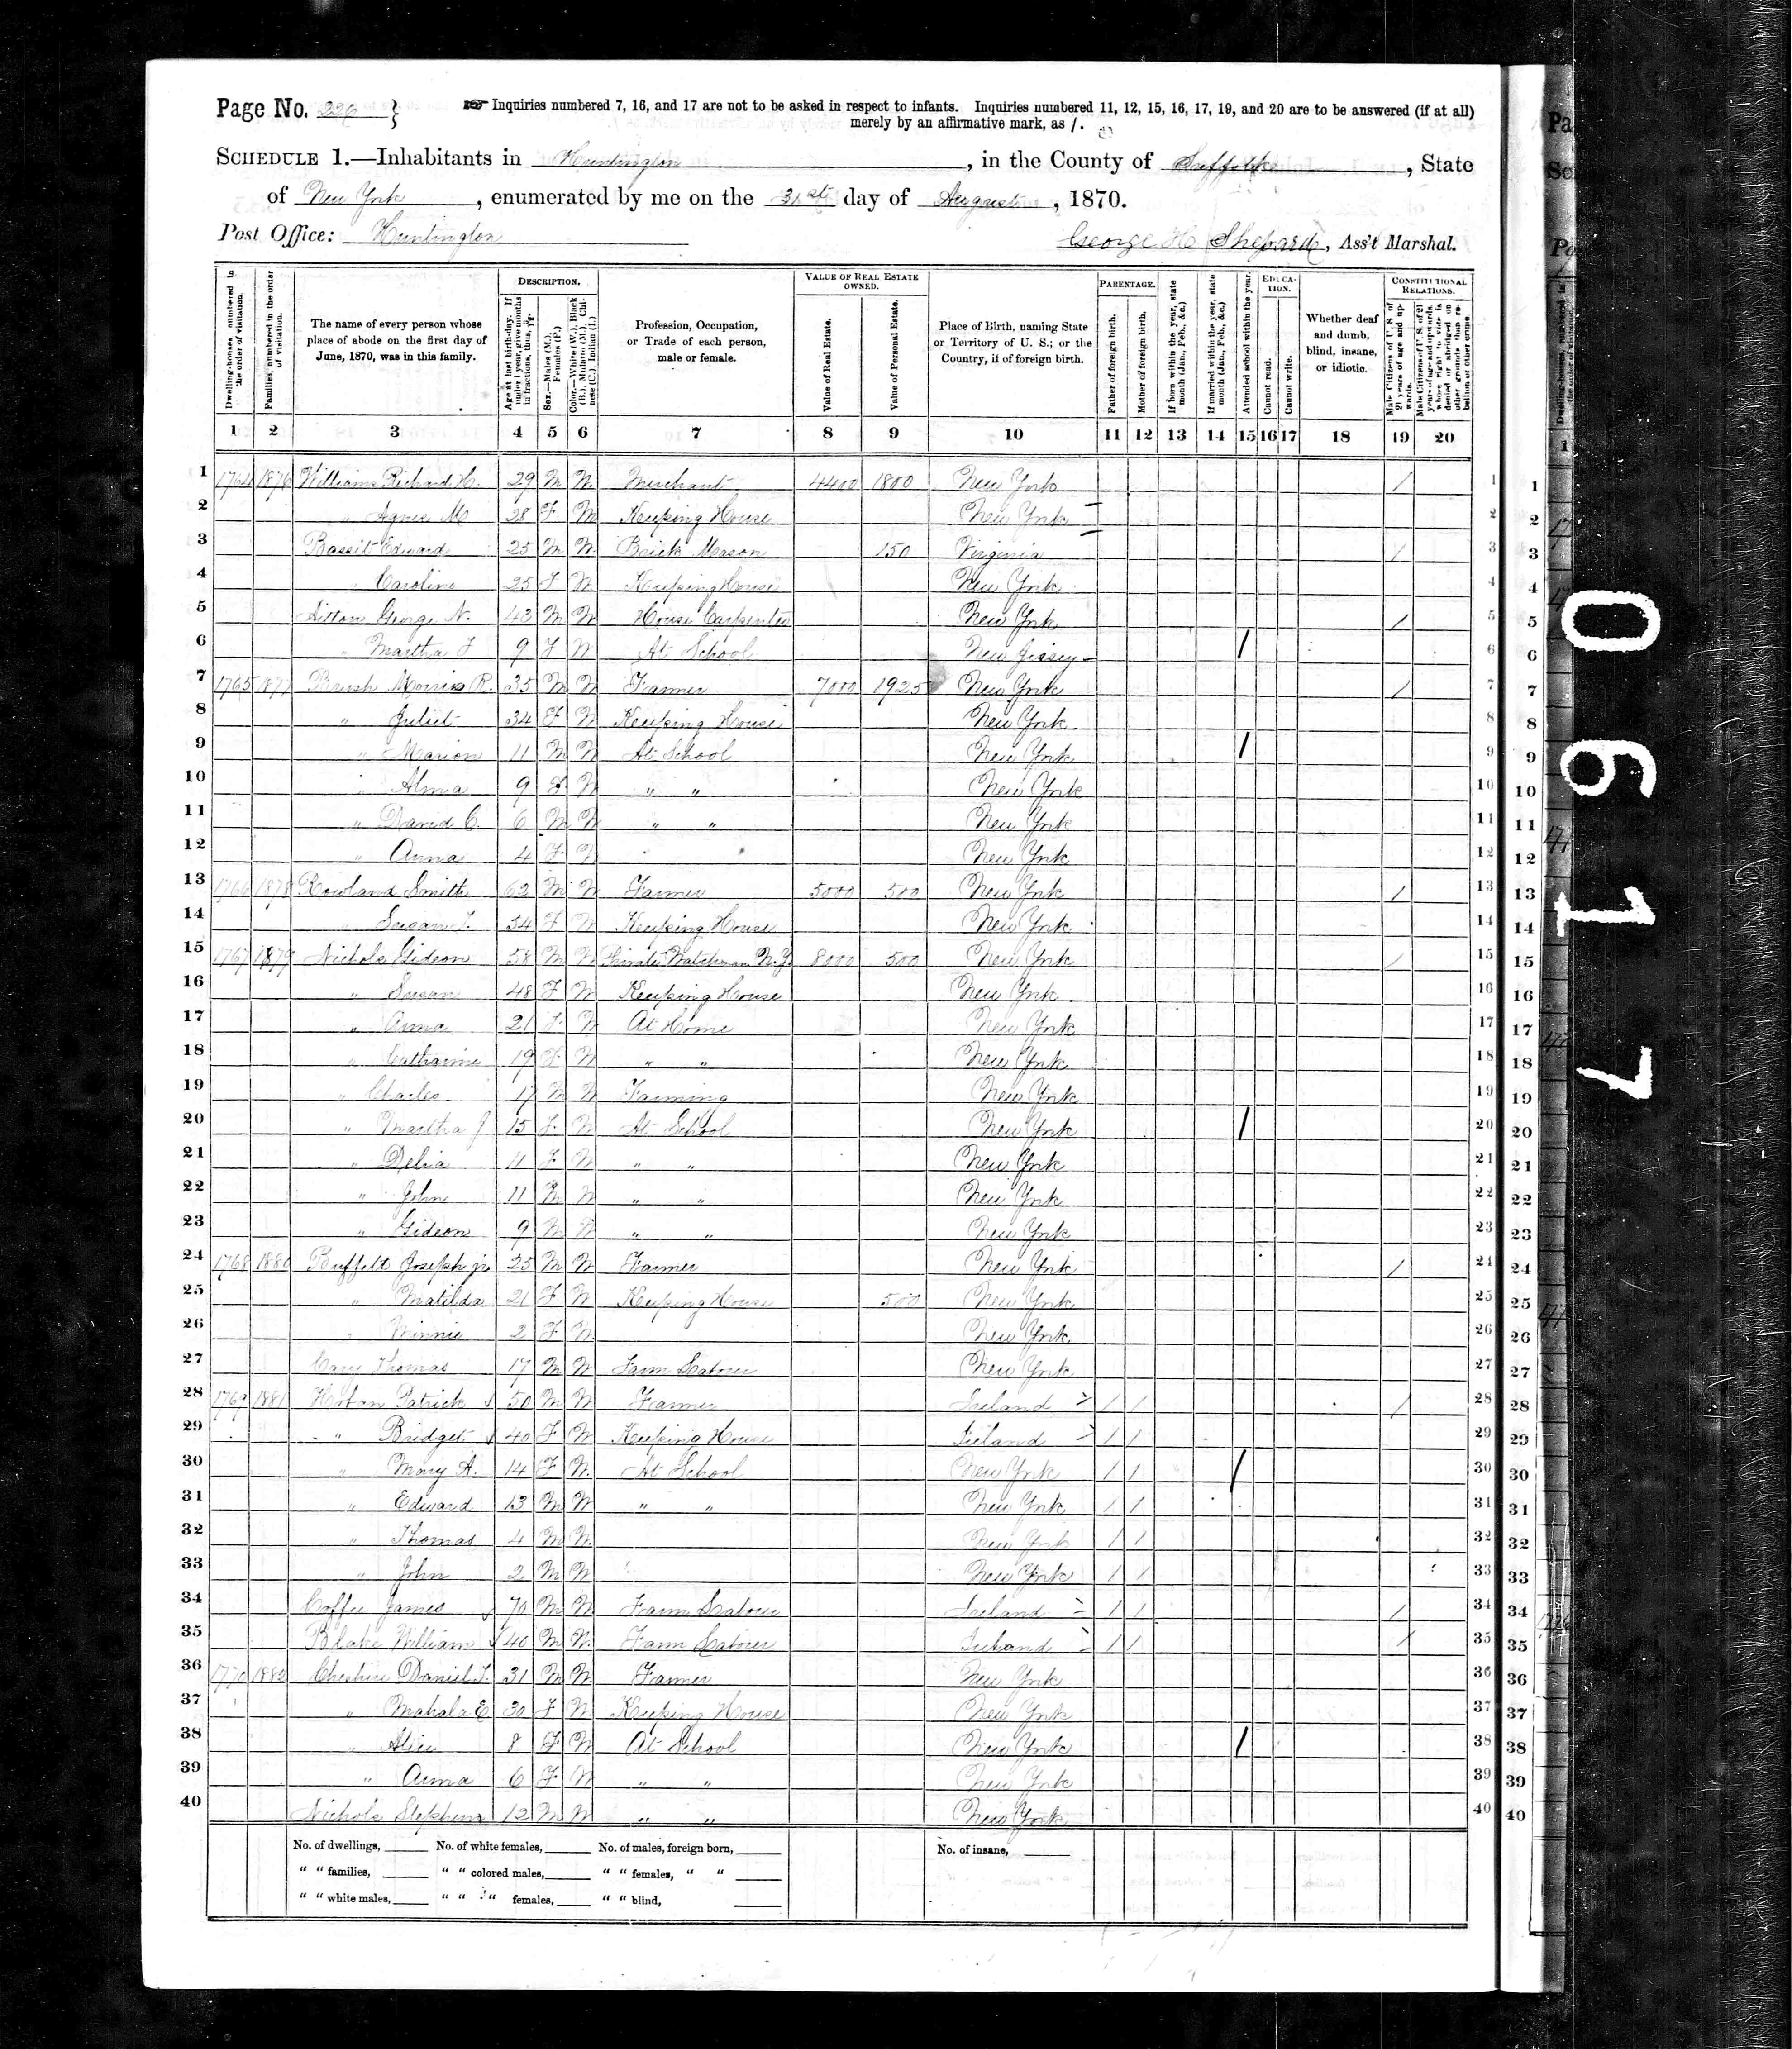 Page No. 226 }
☞ Inquiries numbered 7, 16, and 17 are not to be asked in respect to infants. Inquiries numbered 11, 12, 15, 16, 17, 19, and 20 are to be answered (if at all)
merely by an affirmative mark, as /.
SCHEDULE 1.—Inhabitants in Huntington, in the County of Suffolk, State
of New York, enumerated by me on the 31st day of August, 1870.
Post Office: Huntington
George H Shepard, Ass't Marshal.
Dwelling-houses, numbered in the order of visitation.
Families, numbered in the order of visitation.
The name of every person whose place of abode on the first day of June, 1870, was in this family.
DESCRIPTION.
Age at last birth-day. If under 1 year, give months in fractions, thus,
Sex.—Males (M.), Females (F.)
Color.—White (W.), Black (B.), Mulatto (M.), Chinese (C.), Indian (I.)
Profession, Occupation, or Trade of each person, male or female.
VALUE OF REAL ESTATE OWNED.
Value of Real Estate.
Value of Personal Estate.
Place of Birth, naming State or Territory of U. S.; or the Country, if of foreign birth.
PARENTAGE.
Father of foreign birth.
Mother of foreign birth.
If born within the year, state month (Jan., Feb., &c.)
If married within the year, state month (Jan., Feb., &c.)
Attended school within the year.
EDUCATION.
Cannot read.
Cannot write.
Whether deaf and dumb, blind, insane, or idiotic.
CONSTITUTIONAL RELATIONS.
Male Citizens of U. S. of 21 years of age and upwards.
Male Citizens of U. S. of 21 years of age and upwards, whose right to vote is denied or abridged on other grounds than rebellion or other crime
1 2 3 4 5 6 7 8 9 10 11 12 13 14 15 16 17 18 19 20
1 1764 1876 Williams Richard H. 29 M W Merchant 4400 1800 New York / 1
2 " Agnes M 28 F W Keeping House New York 2
3 Bassit Edward 25 M W Brick Mason 150 Virginia / 3
4 " Caroline 25 F W Keeping House New York 4
5 George N. 43 M W House Carpenter New York / 5
6 " Martha F 9 F W At School New Jersey / 6
7 1765 1877 Brush Morris R. 35 M W Farmer 7000 1925 New York / 7
8 " Juliet 34 F W Keeping House New York 8
9 " Marion 11 M W At School New York / 9
10 " Alma 9 F W " " New York 10
11 " David C. 6 M W " " New York 11
12 " Anna 4 F W New York 12
13 1766 1878 Rowland Smith 62 M W Farmer 5000 500 New York / 13
14 " Susan 54 F W Keeping House New York 14
15 1767 1879 Nichols Gideon 58 M W Private Watchman N.Y. 8000 500 New York / 15
16 " Susan 48 F W Keeping House New York 16
17 " Anna 21 F W At Home New York 17
18 " Catharine 19 F W " " New York 18
19 " Charles 17 M W Farming New York 19
20 " Martha J 15 F W At School New York / 20
21 " Delia 11 F W " " New York 21
22 " John 11 M W " " New York 22
23 " Gideon 9 M W " " New York 23
24 1768 1880 Buffett Joseph jr 25 M W Farmer New York / 24
25 " Matilda 21 F W Keeping House 500 New York 25
26 " Minnie 2 F W New York 26
27 Cary Thomas 17 M W Farm Laborer New York 27
28 1769 1881 Patrick 50 M W Farmer Ireland / / / 28
29 " Bridget 40 F W Keeping House Ireland / / 29
30 " Mary A. 14 F W At School New York / / / 30
31 " Edward 13 M W " " New York / / 31
32 " Thomas 4 M W New York / / 32
33 " John 2 M W New York / / 33
34 Coffee James 70 M W Farm Laborer Ireland / / / 34
35 Blake William 40 M W Farm Laborer Ireland / / / 35
36 1770 1882 Cheshire Daniel 31 M W Farmer New York 36
37 " Mahala E 30 F W Keeping House New York 37
38 " Alice 8 F W At School New York / 38
39 " Anna 6 F W " " New York 39
40 Nichols Stephen 12 M W " " New York 40
No. of dwellings, No. of white females, No. of males, foreign born, No. of insane,
" " families, " " colored males, " " females, " "
" " white males, " " " females, " " blind,
0617